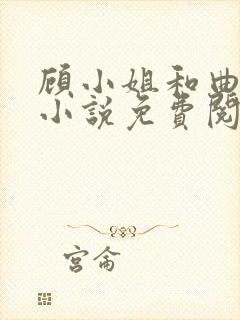 顾小姐和曲
小说免费阅
宫侖